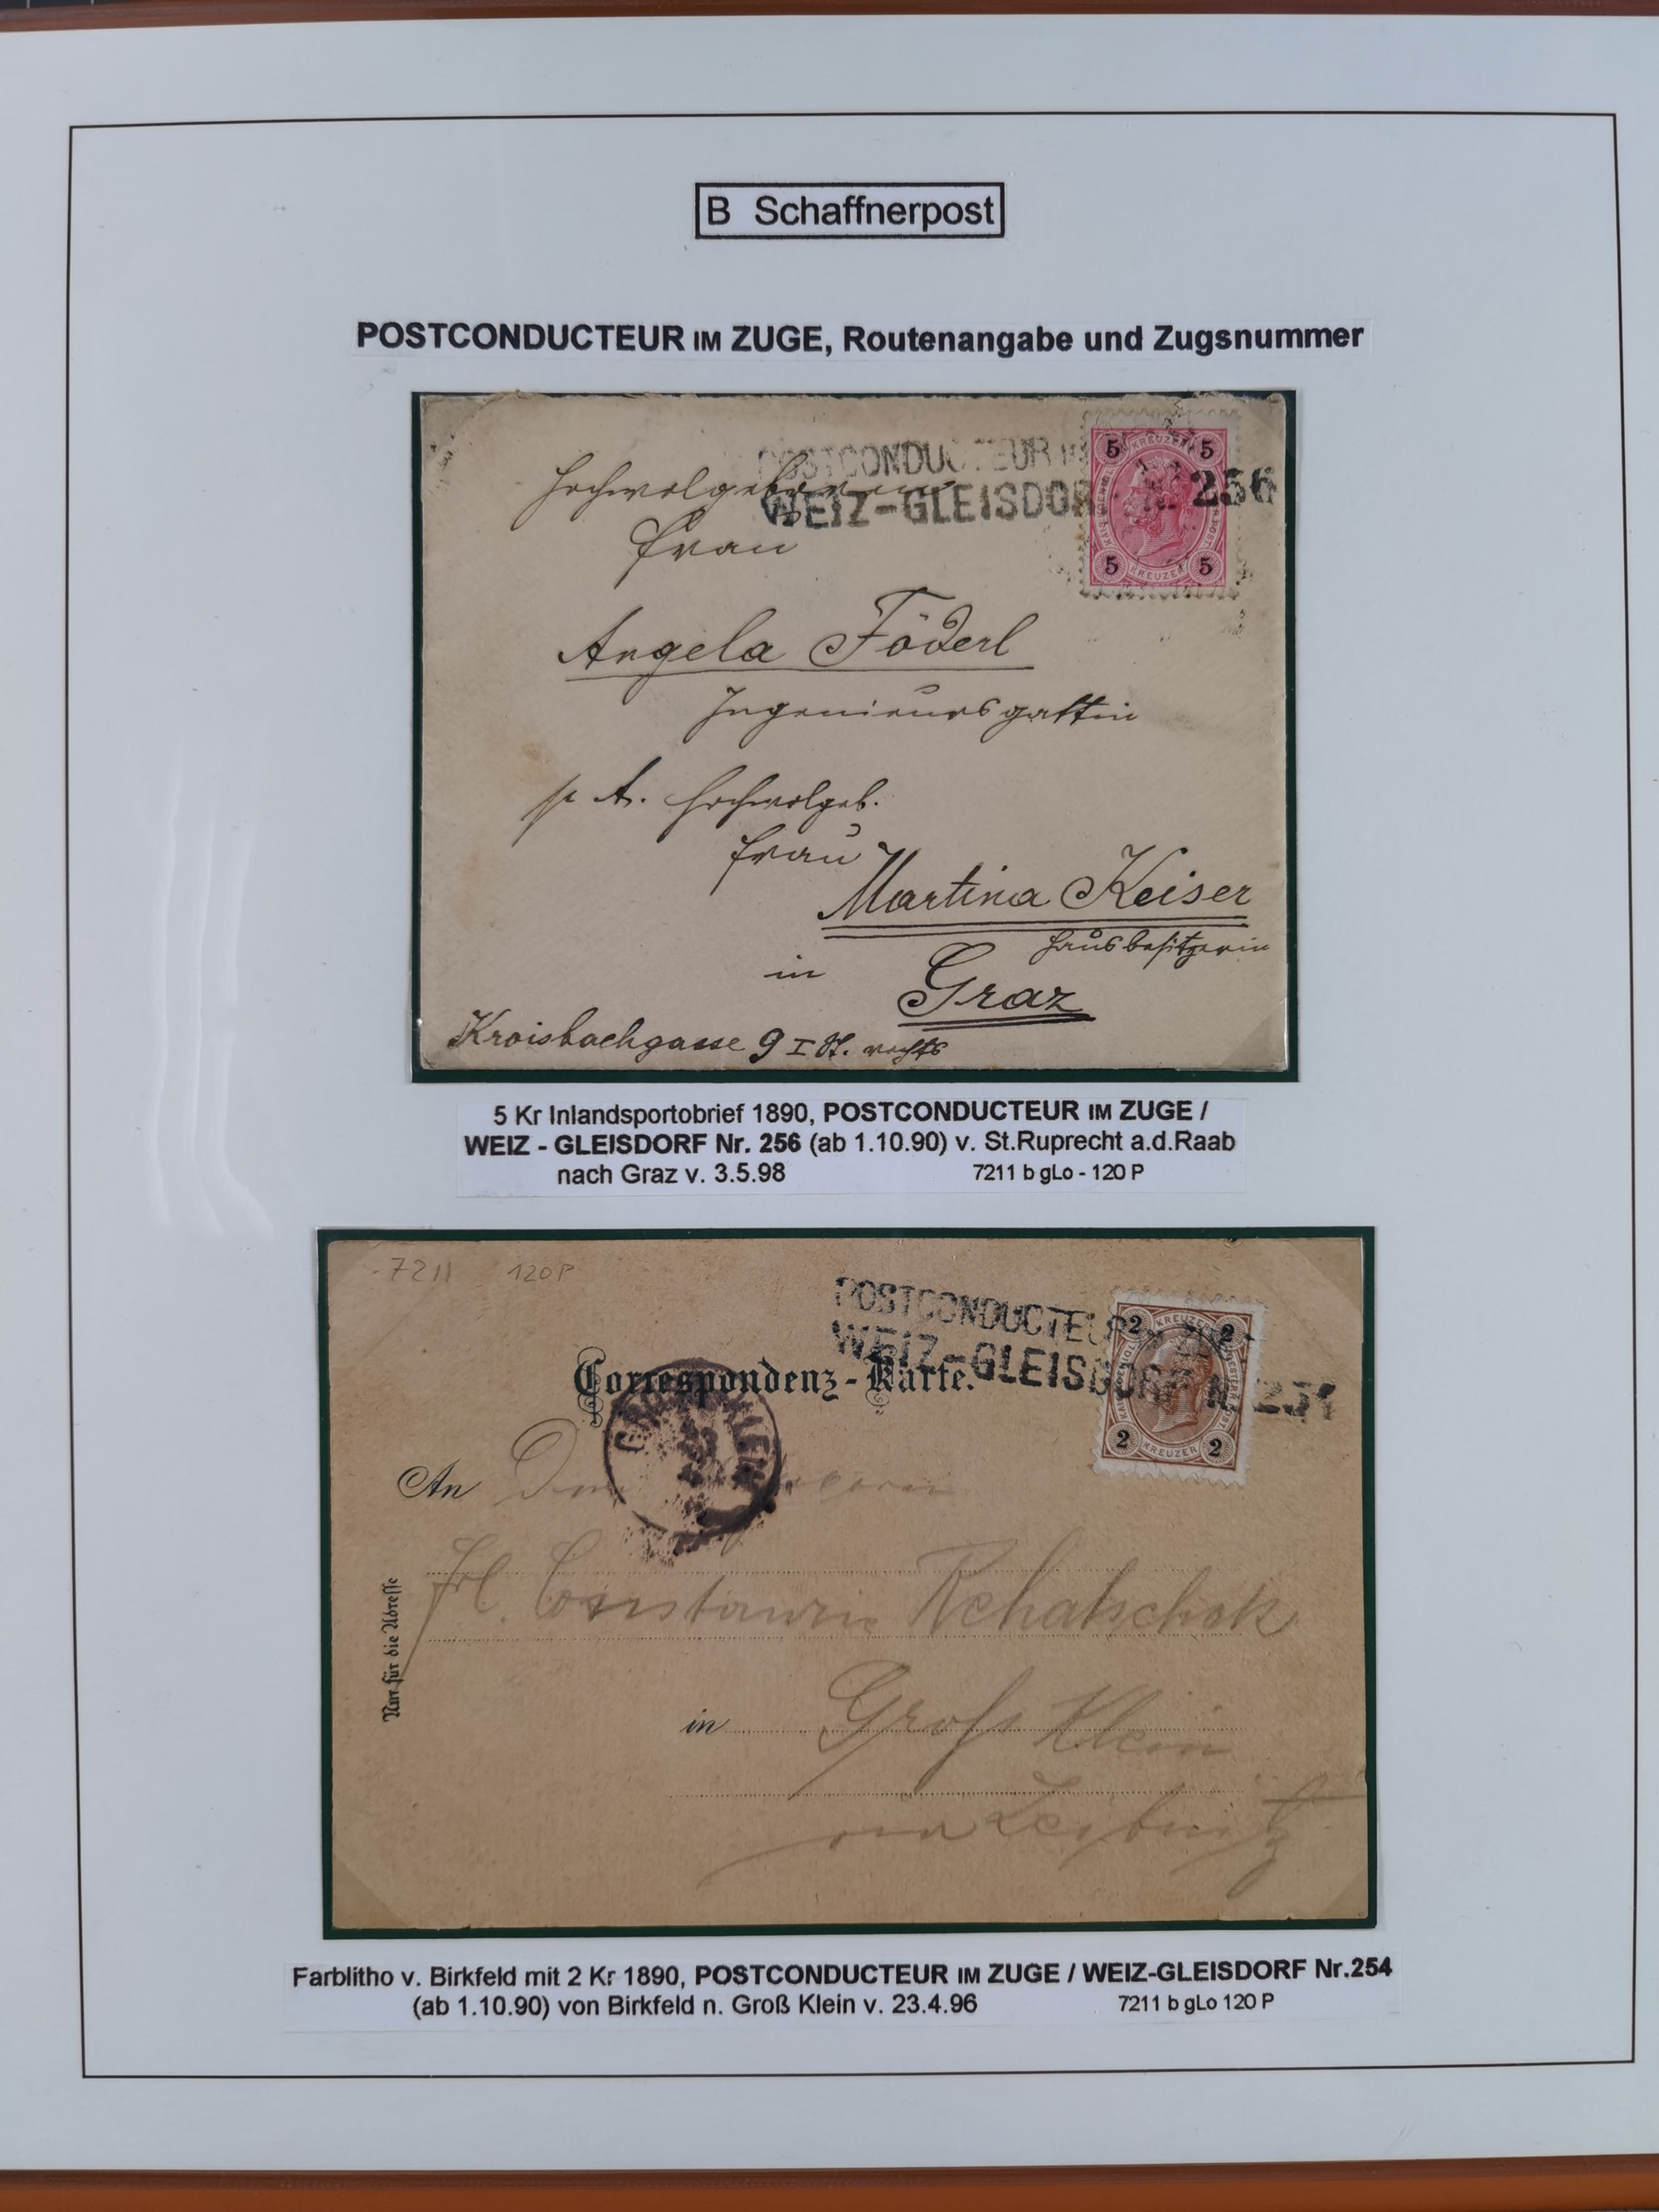 B Schaffnerpost
POSTCONDUCTEUR IM ZUGE, Routenangabe und Zugsnummer
POSTCONDUCTEUR
WEIZ-GLEISDORF Nr. 256
5 KREUZER 5
5 KREUZER 5
Hochwolgeboren
Frau
Angela Föderl
Ingenieursgattin
p A. Hochwolgeb.
Frau
Martina Keiser
Hausbesitzerin
in Graz
Kroisbachgasse 9 I St. rechts
5 Kr Inlandsportobrief 1890, POSTCONDUCTEUR IM ZUGE /
WEIZ - GLEISDORF Nr. 256 (ab 1.10.90) v. St.Ruprecht a.d.Raab
nach Graz v. 3.5.98 7211 b gLo - 120 P
7211 120P
POSTCONDUCTEUR
WEIZ-GLEISDORF N. 254
2 KREUZER 2
2 KREUZER 2
Correspondenz-Karte.
KLEIN
An
Frl. Constanzie Rehatschek
Nur für die Adresse
in Groß Klein
via Leibnitz
Farblitho v. Birkfeld mit 2 Kr 1890, POSTCONDUCTEUR IM ZUGE / WEIZ-GLEISDORF Nr.254
(ab 1.10.90) von Birkfeld n. Groß Klein v. 23.4.96 7211 b gLo 120 P